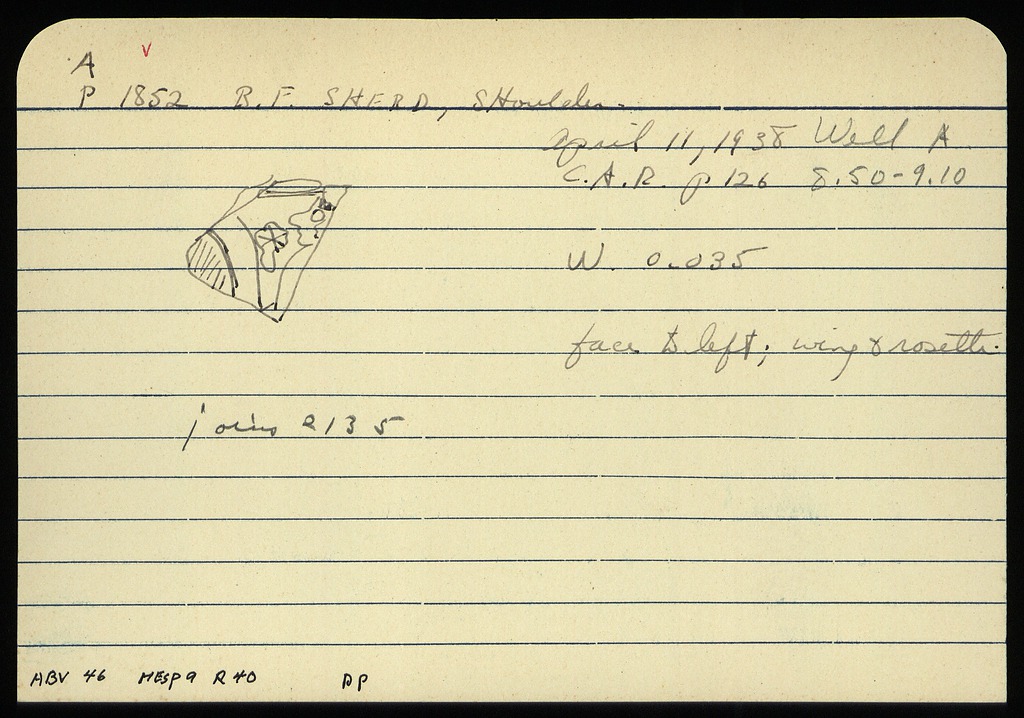 A v
P 1852 B.F. SHERD, SHoulder.
April 11, 1938 Well A
C.A.R. p 126 8.50-9.10
W. 0.035
face to left; wing & rosette.
joins 2135
ABV 46 MESP 9 R 40 DP